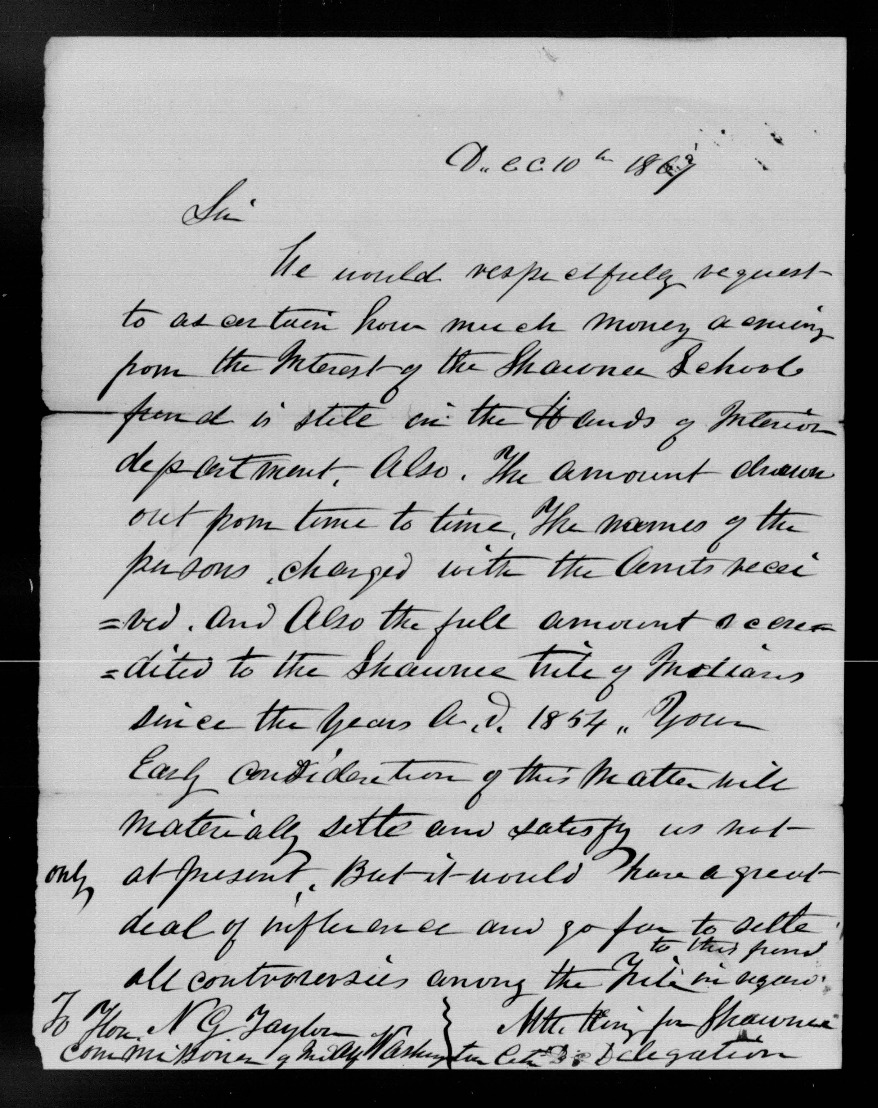 Dec 10th 1867
Sir
We would respectfully request
to ascertain how much money accruing
from the Interest of the Shawnee School
fund is still in the Hands of Interior
department, Also, The amount drawn
out from time to time, The names of the
persons, charged with the Amts recei
=ved, and Also the full amount accre=
=dited to the Shawnee tribe of Indians
since the Years A.D. 1854, Your
Early consideration of this Matter will
materially settle and satisfy us not
only at present, But it would have a great
deal of influence and go far to settle
all controversies among the Tribe in regard
to this fund
To Hon. N G Taylor
Commissioner of Ind Aff Washington City D.C.
King for Shawnee
Delegation